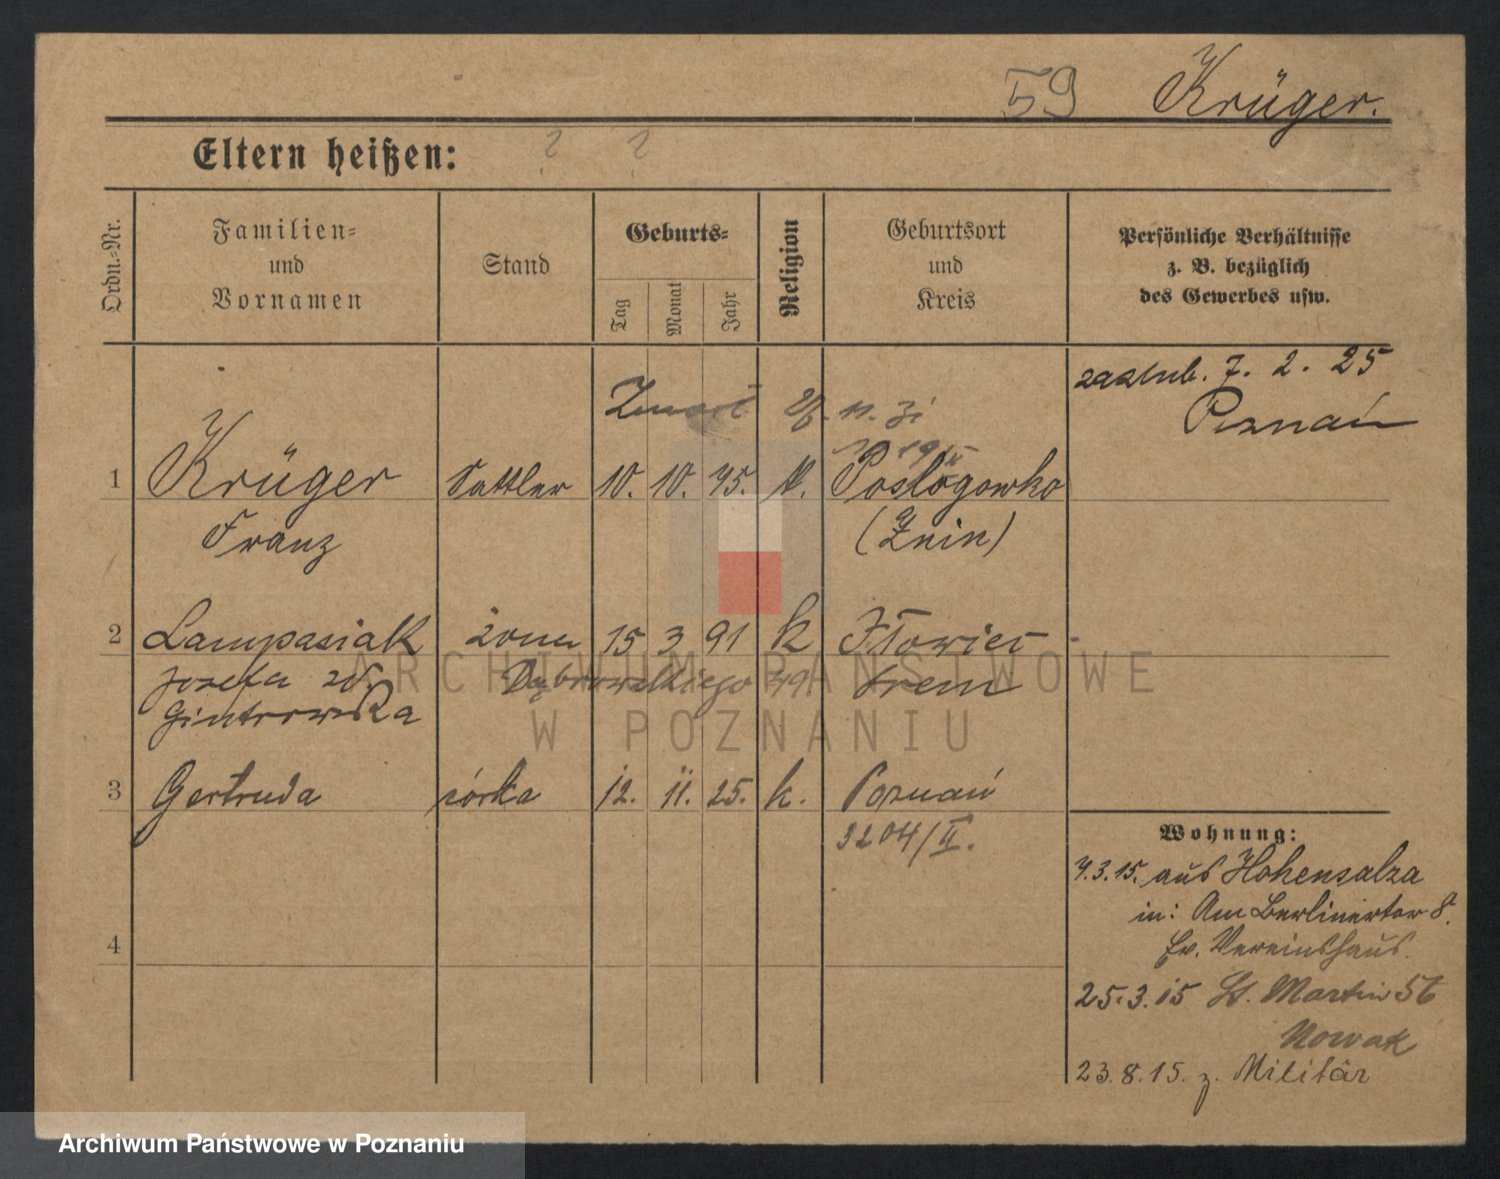 59 Krüger.
Eltern heißen: ? ?
Ordn.-Nr.
Familien-
und
Vornamen
Stand
Geburts-
Tag
Monat
Jahr
Religion
Geburtsort
und
Kreis
Persönliche Verhältnisse
z. B. bezüglich
des Gewerbes usw.
zaślub. 7. 2. 25
Poznań
Zmarł 11. 31
1 Krüger Sattler 10. 10. 95. k. Posługowko
Franz (Znin)
2 Lampasiak żona 15 3 91 k Iłowiec
Józefa zd. Dąbrowskiego 49 Śrem
Gintrowska
3 Gertruda córka 12. 11. 25. k. Poznań
3204/II.
4
Wohnung:
4.3.15. aus Hohensalza
in: Am Berlinertor 8.
Ev. Vereinshaus.
25.3.15 St. Martin 56
Nowak
23.8.15. z. Militär
ARCHIWUM PAŃSTWOWE
W POZNANIU
Archiwum Państwowe w Poznaniu